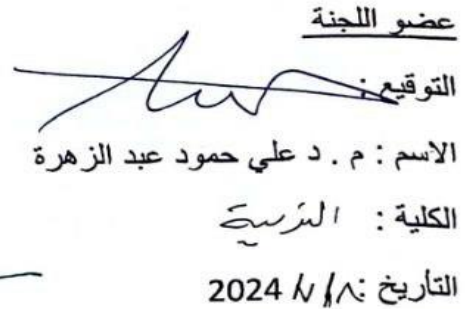 عضو اللجنة
التوقيع :
الاسم : م . د علي حمود عبد الزهرة
الكلية : التربية
التأريخ : 2024